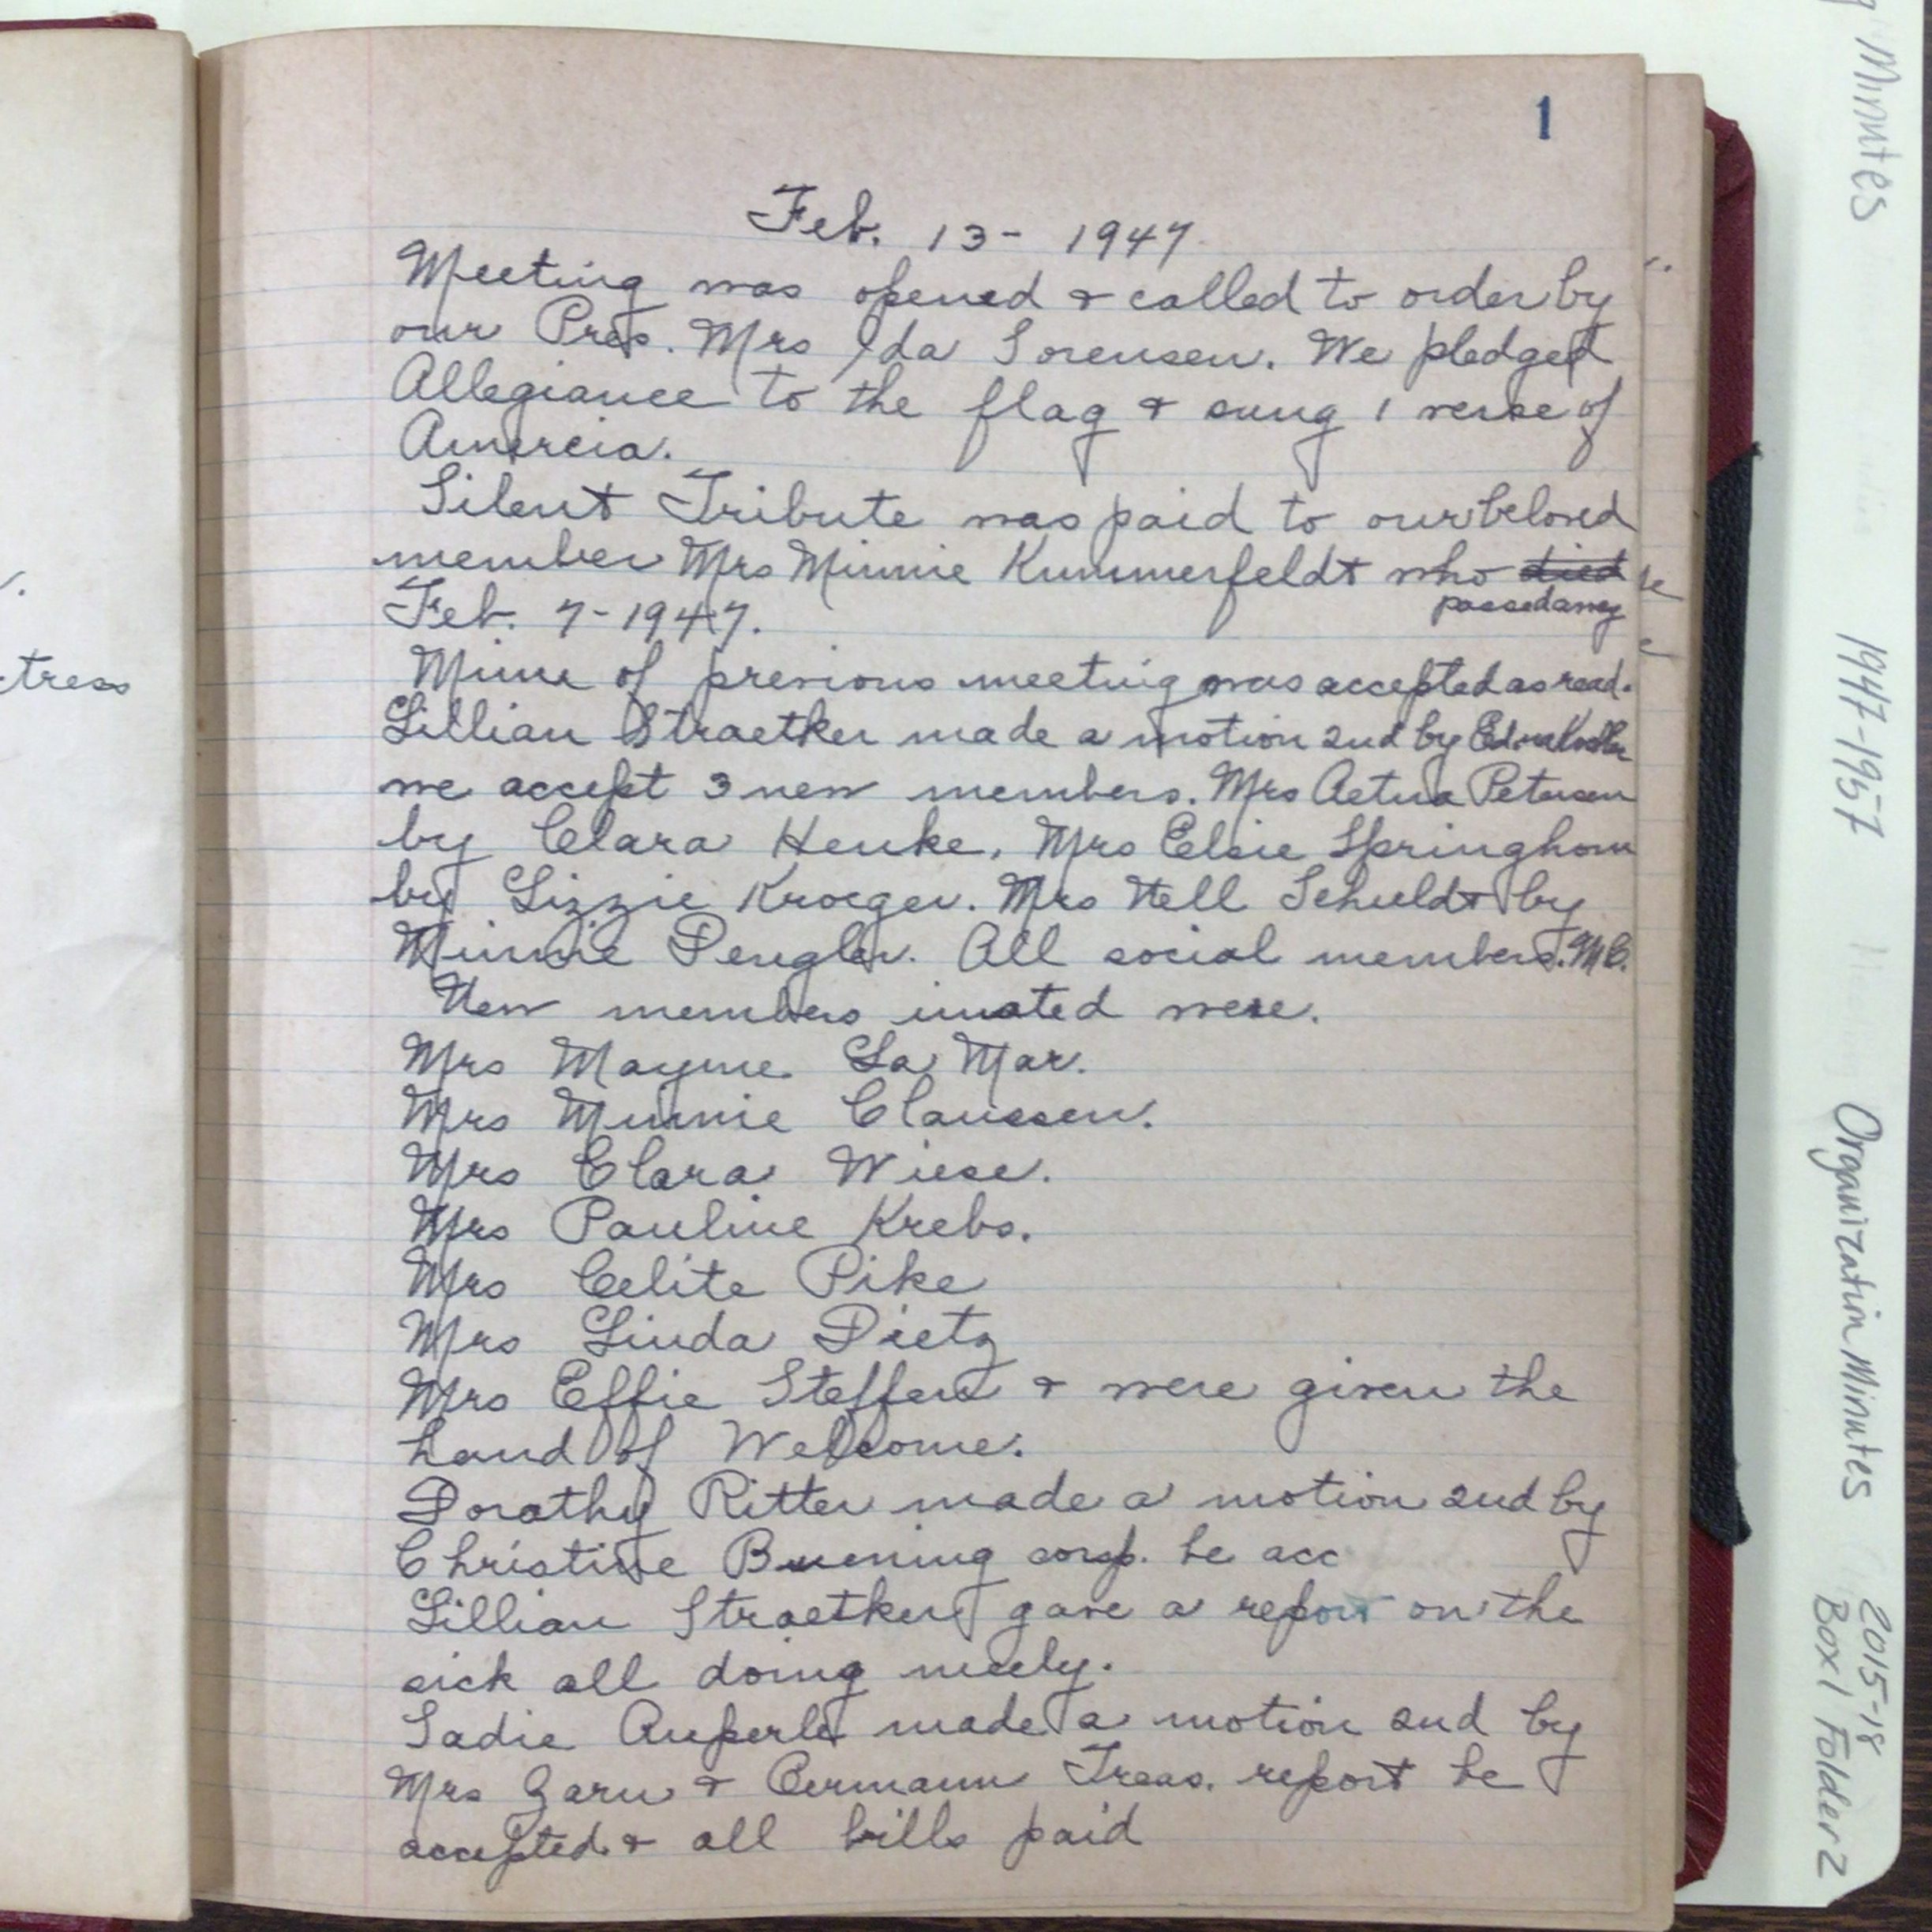 1
Feb. 13- 1947
Meeting was opened & called to order by
our Pres. Mrs Ida Sorensen. We pledged
Allegiance to the flag & sung 1 verse of
Amercia.
Silent Tribute was paid to our beloved
member Mrs Minnie Kummerfeldt who died
passed away
Feb. 7-1947.
of previous meeting was accepted as read.
Lillian Straetker made a motion 2nd by Edna
we accept 3 new members. Mrs Aetna Petersen
by Clara Henke, Mrs Elsie Springhorn
by Lizzie Kroeger. Mrs Nell Schuldt by
Minnie Dengler. All social members. M.C.
New members were.
Mrs Mayme La Mar.
Mrs Minnie Claussen.
Mrs Clara Wiese.
Mrs Pauline Krebs.
Mrs Celite Pike
Mrs Linda Dietz
Mrs Effie Steffens & were given the
hand of Welcome.
Dorothy Ritter made a motion 2nd by
Christine Buening corsp. be acc
Lillian Straetker gave a report on the
sick all doing nicely.
Sadie Auperle made a motion 2nd by
Mrs Garn & Treas. report be
accepted & all bills paid
tress
Minutes
1947-1957
Organization Minutes
2015-18
Box 1 Folder 2